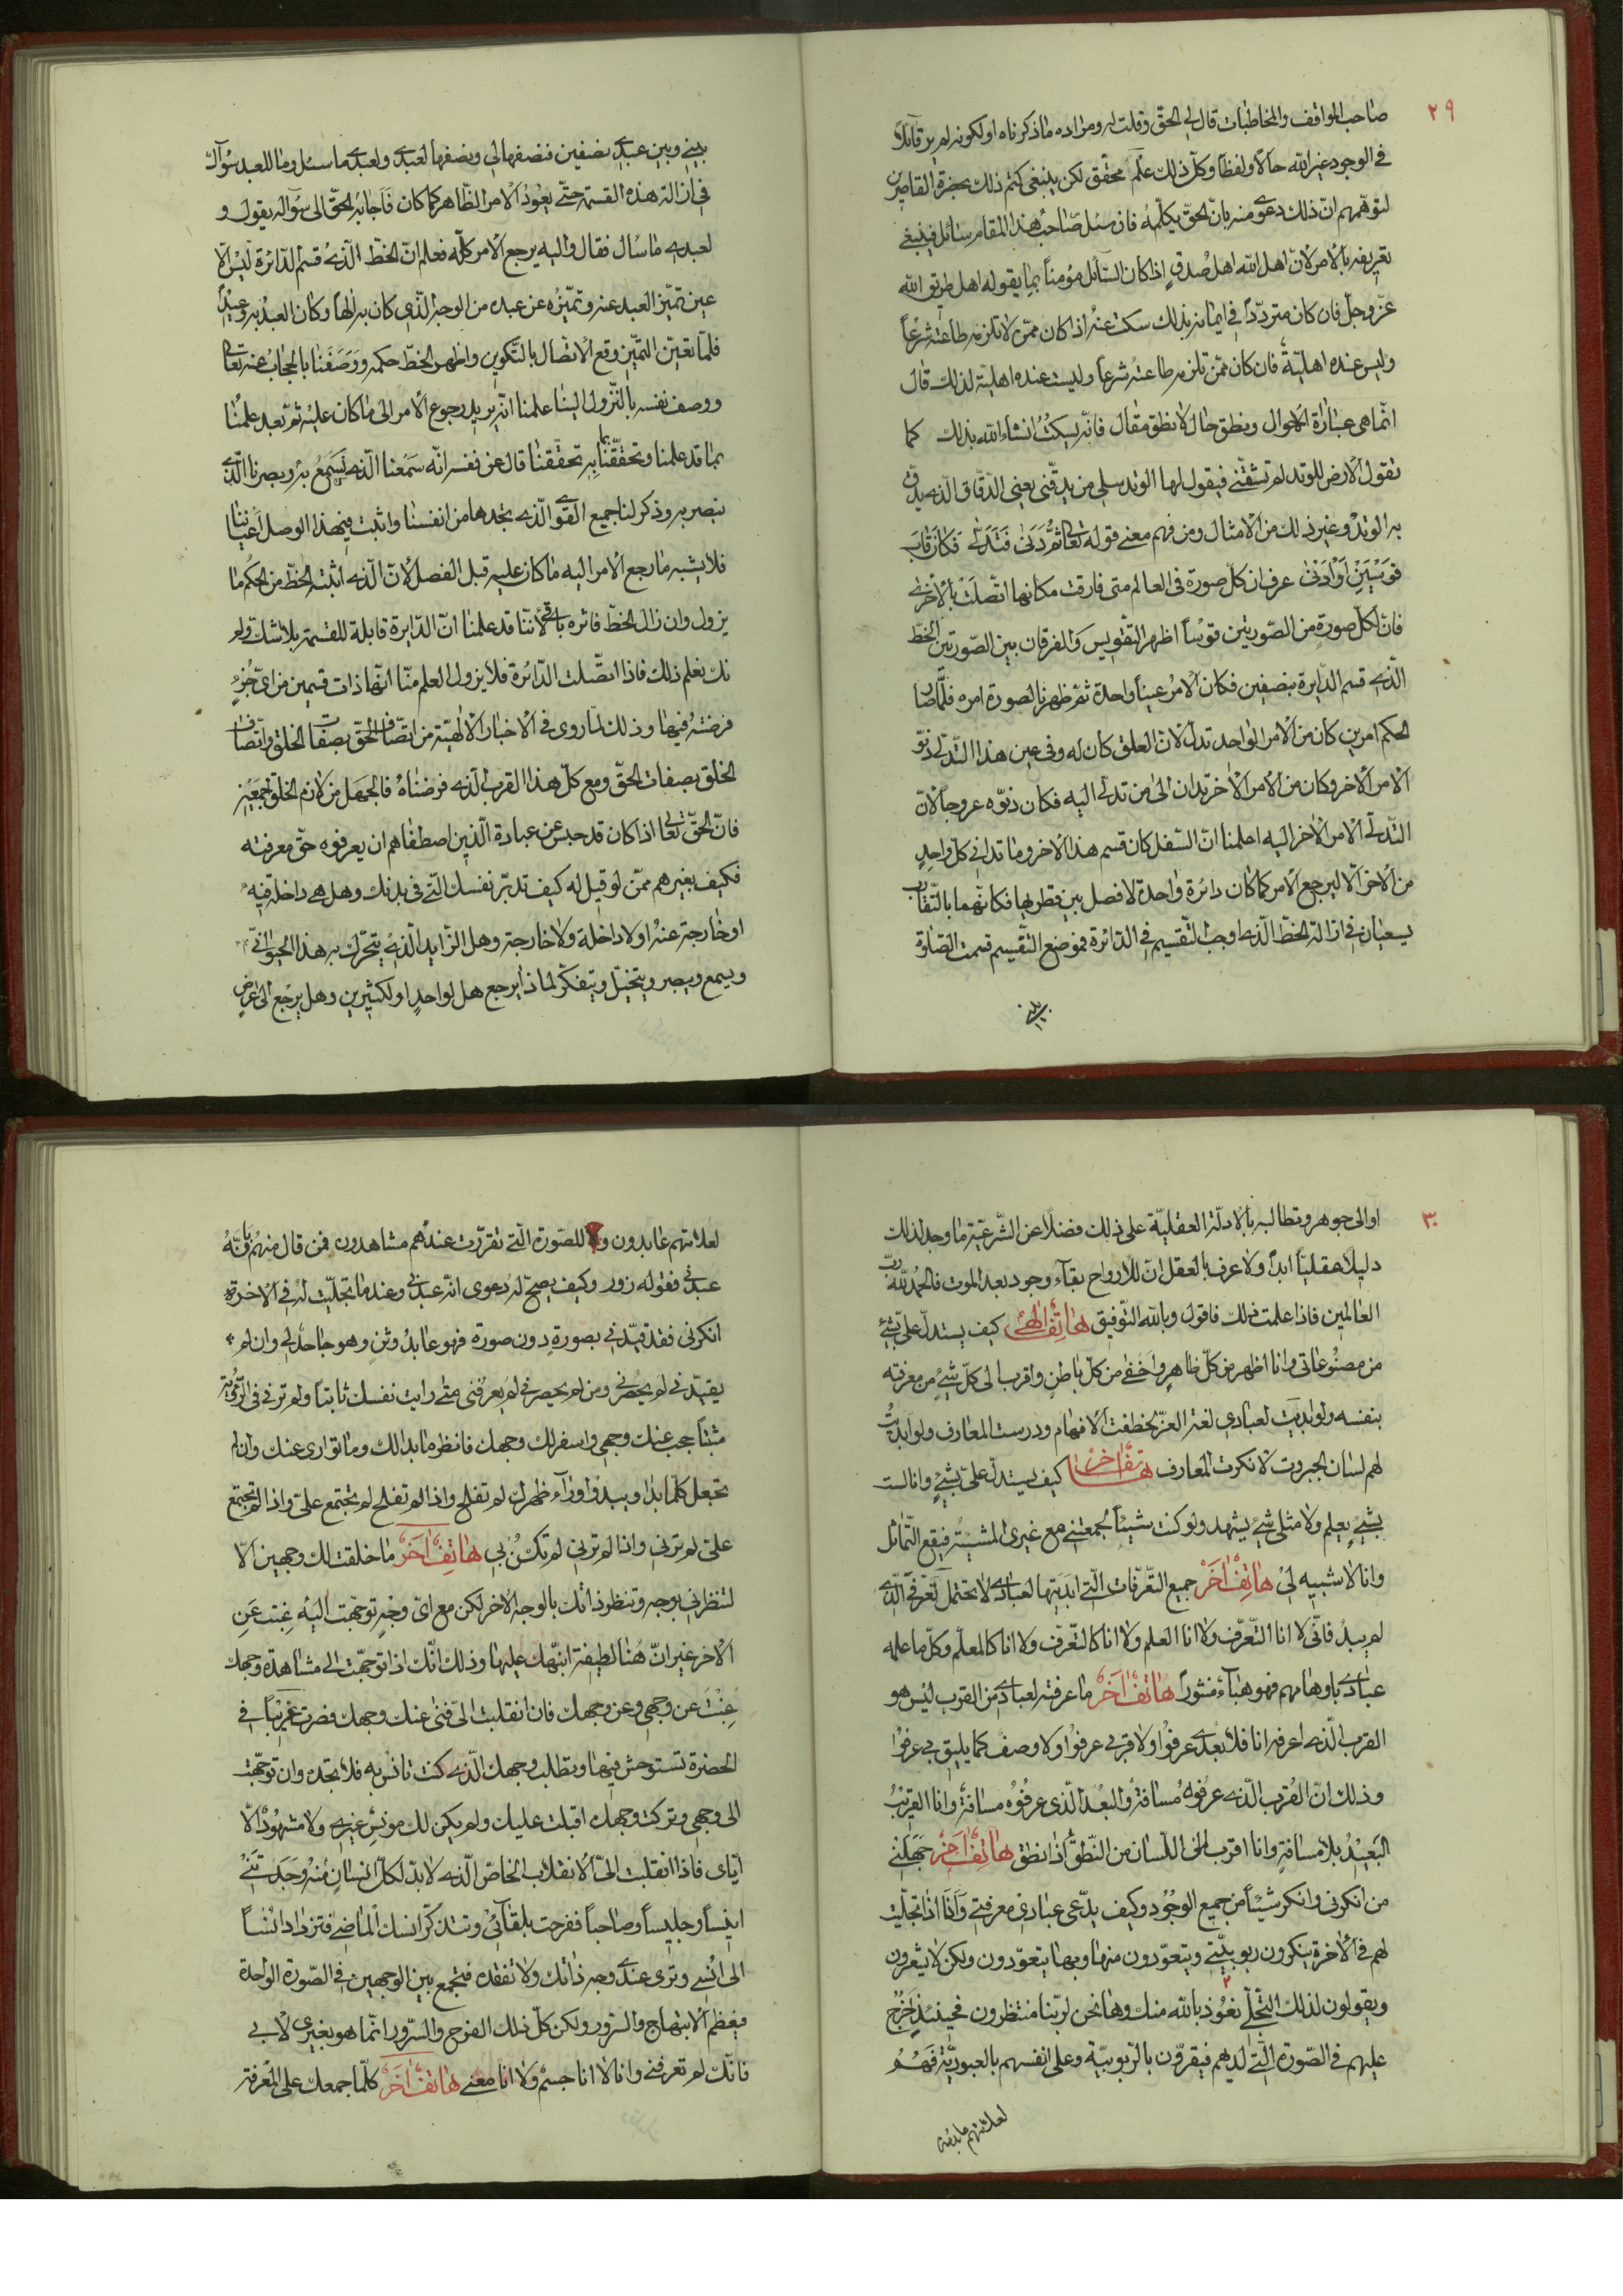 ٢٩
صاحب المواقف والمخاطبات قال لي الحقّ وقلت له ومراده ماذكرناه او لكونه لم ير قآئلاً
في الوجود غير الله حالاً ولفظاً وكلّ ذلك علم محقّق لكن ينبغي كتم ذلك بحضرة القاصرين
لتوهّمهم انّ ذلك دعوى منه بانّ الحقّ يكلّمه فان سئل صاحب هذا المقام سائل فينبغي
تعريفه بالامر لانّ اهل الله اهل صدق اذا كان السّآئل مؤمناً بما يقوله اهل طريق الله
عزّ وجلّ فان كان متردّداً في ايمانه بذلك سكت عنه اذا كان ممّن لا تلزمه طاعته شرعاً
وليس عنده اهليّة فان كان ممّن تلزمه طاعته شرعاً وليست عنده اهلية لذلك قال
انّما هي عبارة احوال ونطق حال لا نطق مقال فانّه يسكت انشاء الله بذلك كما
تقول الارض للوتد لم تشقّني فيقول لها الوتد سلي من يدقّني يعني الدّقاق الّذى يدقّ
به الوتد وغير ذلك من الامثال ومن فهم معنى قوله تعالى ثُمَّ دَنىٰ فَتَدَلّىٰ فَكانَ قابَ
قَوْسَيْنِ اَوْ اَدْنىٰ عرف ان كلّ صورة في العالم متى فارقت مكانها اتّصلت بالاخرى
فانّ لكلّ صورة من الصّورتين قوساً اظهر التقويس والفرقان بين الصّورتين الخطّ
الّذي قسم الدّايرة بنصفين فكان الامر عيناً واحدة ثمّ ظهر بالصورة امره فلمّا صار
الحكم امرين كان من الامر الواحد تدلّ لانّ العلق كان له وفي عين هذا التّدلّى دنوّ
الامر الاخر وكان من الامر الاخر تدان الى من تدلّى اليه فكان دنوّه عروجاً لانّ
التّدلّى الامر الاخر اليه اعلمنا انّ السّفل كان قسم هذا الاخر وما تدانى كلّ واحدٍ
من الاخر الّا ليرجع الامر كما كان دائرة واحدة لا فصل بين قطريها فكانّهما بالتّقارب
يسعيان في ازالة الخطّ الّذى اوجب التّقسيم في الدّائرة فموضع التّقسيم قسمت الصّلوة
بينى
بيني وبين عبدى نصفين فنصفها لي ونصفها لعبدى ولعبدى ما سئل وما للعبد سؤال
في ازالة هذه القسمة حتّى يعود الامر الظّاهر كما كان فاجابه الحقّ الى سؤاله بقوله و
لعبدى ما سأل فقال واليه يرجع الامر كلّه فعلم انّ الخطّ الّذى قسم الدّائرة ليس الّا
عين تميّز العبد عنه وتميّزه عن عبده من الوجه الّذي كان به الهاً وكان العبد به عبداً
فلمّا تعيّن التميّن وقع الانّصال بالتّكوين واظهر الخطّ حكمه ووصفنا بالحجاب عنه تعالى
ووصف نفسه بالنّزول الينا علمنا انّه يريد رجوع الامر الى ما كان عليه ثمّ بعد علمنا
بما قد علمنا وتحقّقنا بما به تحقّقنا قال عن نفسه انّه سمعنا الّذى نسمع به وبصرنا الّذى
نبصر به وذكر لنا جميع القوى الّذى نجدها من انفسنا واثبت في هذا الوصل اعياننا
فلا يشبه ما رجع الامر اليه ما كان عليه قبل الفصل لانّ الّذى اثبته الخطّ من الحكم ما
يزول وان زال الخطّ فاثره باقٍ لانّنا قد علمنا انّ الدّايرة قابلة للقسمة بلا شكّ ولم
نك نعلم ذلك فاذا اتّصلت الدّائرة فلا يزول العلم منّا انّها ذات قسمين من اىّ جزءٍ
فرضته فيها وذلك لما روى في الاخبار الالهيّة من اتّصاف الحقّ بصفات الخلق واتّصاف
الخلق بصفات الحقّ ومع كلّ هذا القرب الّذى فرضناه فالجهل من لازم الخلق اجمعين
فانّ الحقّ تعالى اذا كان قد حبس عن عبادة الّذين اصطفاهم ان يعرفوه حقّ معرفته
فكيف بغيرهم ممّن لو قيل له كيف تدبّر نفسك الّتي في بدنك وهل هي داخلة فيه
او خارجة عنه او لا داخلة ولا خارجة وهل الزّايد الّذى يتحرّك به هذا الحيوانيّ
ويسمع ويبصر ويتخيّل ويتفكّر لماذا يرجع هل لواحدٍ او لكثيرين وهل يرجع الى عرضٍ
٣٠
او الى جوهر وتطالبه بالادلّة العقليّة على ذلك فضلاً عن الشّرعيّة ما وجد لذلك
دليلاً عقليّاً ابداً ولا عرف بالعقل انّ للارواح بقآء وجود بعد الموت فالحمد للّه ربّ
العالمين فاذا علمت ذلك فاقول وبالله التّوفيق هاتفٌ الهىّ كيف يستدلّ علىّ بشئ
من مصنوعاتي وانا اظهر من كلّ ظاهر واخفى من كلّ باطن واقرب الى كلّ شئ من معرفته
بنفسه ولو ابديت لعبادي لغة العزّ لخطفت الافهام ودرست المعارف ولو ابديت
لهم لسان الجبروت لانكرت المعارف هاتفٌ اخر كيف يستدلّ علىّ بشئٍ وانا لست
بشئٍ يعلم ولا مثلى شئ يشهد ولو كنت شيئاً لجمعتني مع غيرى المشيئة فيقع التّماثل
وانا لا شبيه لى هاتفٌ اٰخر جميع التّعرّفات الّتى ابديتها لعبادى لا تحتمل تعرّفى الّذى
لم يبد فانّى لا انا التّعرّف ولا انا العلم ولا انا كالتّعرّف ولا انا كالمعلّم وكلّ ما علمه
عبادى باوهامهم فهو هبآء منثوراً هاتفٌ اٰخر ما عرفته لعبادى من القرب ليس هو
القرب الّذى اعرفه انا فلا بعدى عرفوا ولا قربى عرفوا ولا وصفى كما يليق بي عرفوا
وذلك انّ القرب الّذى عرفوه مسافة والبعد الّذى عرفوه مسافة وانا القريب
البعيد بلا مسافةٍ وانا اقرب الى اللّسان من النّطق اذا نطق هاتفٌ اٰخر جهلنى
من انكرنى وانكر شيئاً من جميع الوجود وكيف يدّعى عبادى معرفتى وانا اذا تجلّيت
لهم في الاخرة ينكرون ربوبيّتى ويتعوّدون منها وبها يتعوّدون ولكن لا يشعرون
ويقولون لذلك التّجلّى نعوذ بالله منك وها نحن لربّنا منتظرون فحينئذٍ اخرج
عليهم في الصّورة الّتى لديهم فيقرّون بالرّبوبيّة وعلى انفسهم بالعبوديّة فهم
لعلامتهم عابدون
لعلامتهم عابدون و للصّورة الّتى تقرّرت عندهم مشاهدون فمن قال منهم بانّه
عبدنى فقوله زور وكيف يصحّ له دعوى انّه عبدنى وعندما تجلّيت له في الاخرة
انكرنى فقد قيّدنى بصورةٍ دون صورة فهو عابد وثنٍ وهو جاحد لى وان لم
يقيّدنى لم يحصرنى ومن لم يحصرنى لم يعرفنى متى رايت نفسك ثابتاً ولم ترنى في الرّؤية
مثبتاً حجب عنك وجهى واسفر لك وجهك فانظر ما بدا لك وما توارى عنك وان لم
تجعل كلّما بدا ويبدو وراء ظهرك لم تفلح واذا لم تفلح لم تجتمع علىّ واذا لم تجتمع
علىّ لم ترنى واذا لم ترنى لم تكن بى هاتفٌ اٰخر ما خلقت لك وجهين الّا
لتنظرنى بوجه وتنظر ذاتك بالوجه الاخر لكن مع اىّ وجهٍ توجّهت اليه غبت عن
الاخر غير انّ هنا لطيفة انبّهك عليها وذلك انّك اذا توجّهت الى مشاهدة وجهك
غبت عن وجهى وعن وجهك فان انقلبت الىّ فنى عنك وجهك فصرت غريباً في
الحضرة تستوحش فيها وتطلب وجهك الّذى كنت تانس به فلا تجده وان توجّهت
الى وجهى وتركت وجهك اقبلت عليك ولم يكن لك مونس غيرى ولا مشهود الّا
ايّاى فاذا انقلبت الىّ الانقلاب الخاصّ الّذى لا بدّ لكلّ انسان منه وجدتنى
انيساً وجليساً وصاحباً ففرحت بلقائى وتتذكّر انسك الماضى فتزداد انساً
الى انسى وترى عندى وجه ذاتك ولا تفقده فيجمع بين الوجهين في الصّورة الواحدة
فيعظم الابتهاج والسّرور ولكن كلّ ذلك الفرح والسّرور انّما هو بغيرى لا بى
فانّك لم تعرفنى وانا لا انا جسم ولا انا معنى هاتفٌ اٰخر كلّما جمعك على المعرفة